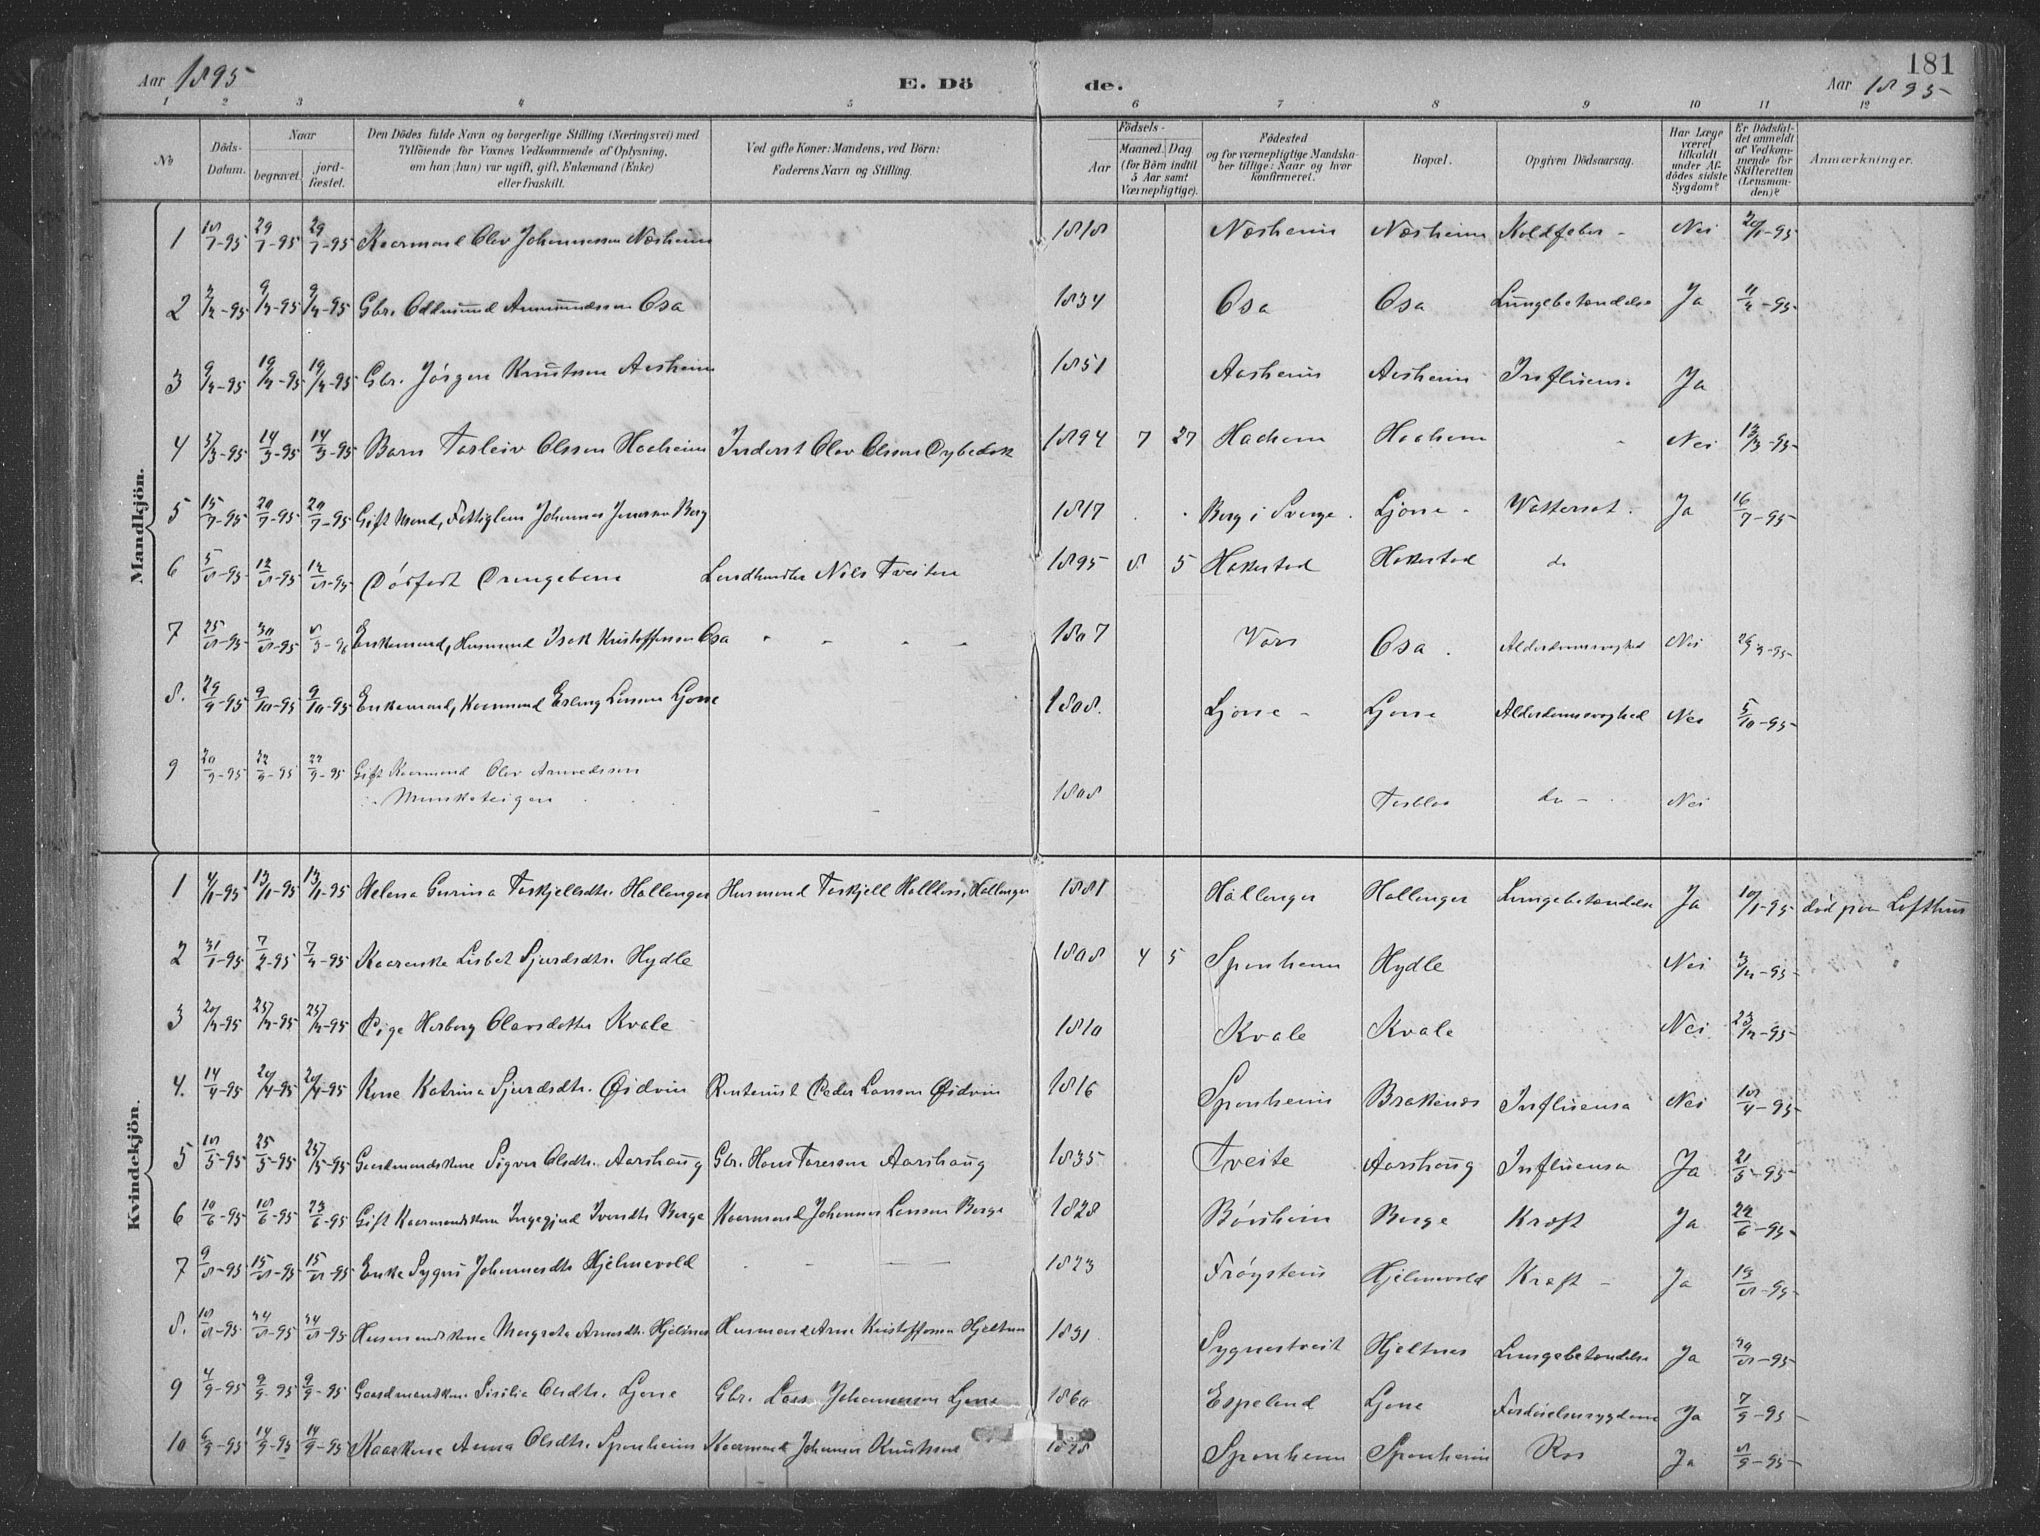 181
Aar 1895 E. Dö de. Aar 1895
1 2 3 4 5 6 7 8 9 10 11 12
No
Döds-Datum.
Naar
begravet.
jord-fæstet.
Den Dödes fulde Navn og borgerlige Stilling (Næringsvei) med
Tilföiende for Voxnes Vedkommende af Oplysning,
om han (hun) var ugift, gift, Enkemand (Enke)
eller fraskilt.
Ved gifte Koner: Mandens, ved Börn:
Faderens Navn og Stilling.
Födsels-
Aar
Maaned. Dag
(for Börn indtil
5 Aar samt
Værnepligtige).
Födested
og for værnepligtige Mandska-
ber tillige: Naar og hvor
konfirmeret.
Bopæl.
Opgiven Dödsaarsag.
Har Læge
været
tilkaldt
under Af-
dödes sidste
Sygdom?
Er Dödsfal-
det anmeldt
af Vedkom-
mende for
Skifteretten
(Lensman-
den)?
Anmærkninger.
Mandkjön.
1 18/1-95 29/1-95 29/1-95 Kaarmand Olav Johannesson Næsheim 1818 Næsheim Næsheim Koldfeber - Nei 20/1-95
2 2/2-95 9/2-95 9/2-95 Gbr. Oddmund Amundsson Osa 1834 Osa Osa Lungebetændelse Ja 11/2-95
3 9/2-95 19/2-95 19/2-95 Gbr. Jörgen Knutson Aasheim 1851 Aasheim Aasheim Influensa Ja
4 14/3-95 14/3-95 Barn Torleiv Olsson Haaheim Inderst Olav Olsson 1894 7 27 Haaheim Haaheim Nei 13/3-95
5 15/7-95 20/7-95 20/7-95 Gift Mand, Fattiglem Johannes Berg 1817 Berg i Sverge Ljone Vattersot Ja 16/7-95
6 5/8-95 12/8-95 12/8-95 Dödfödt Drengebarn Landhandler Nils Tveiten 1895 8 5 Hakestad Hakestad do
7 25/8-95 30/8-95 Enkemand, Husmand Isak Kristoffersson Osa 1807 Vors Osa Alderdomssvaghed Nei
8. 29/9-95 9/10-95 9/10-95 Enkemand, Kaarmand Erling Larsson Ljone 1808 Ljone Ljone Alderdomssvaghed Nei 5/10-95
9 20/9-95 22/9-95 Gift Kaarmand Olav Arnvedsson
Munketeigen 1808 Torblaa do - Nei
Kvindekjön.
1 4/1-95 13/1-95 13/1-95 Helena Gurina Torkjellsdtr. Hallanger Husmand Torkjell Hallanger 1881 Hallanger Hallanger Lungebetændelse Ja 10/1-95 död paa Lofthus
2 31/1-95 7/2-95 7/2-95 Kaarenke Lisbet Sjurdsdtr. Hydle 1808 4 5 Sponheim Hydle Nei 3/2-95
3 20/2-95 25/2-95 25/2-95 Pige Herborg Olavsdotter Kvale 1810 Kvale Kvale Nei 23/2-95
4. 14/4-95 20/4-95 20/4-95 Kone Katrina Sjurdsdtr. Øidvin Rentenist Peder Larsson Øidvin 1816 Sponheim Brakenæs Influensa Nei 18/4-95
5 18/5-95 25/5-95 25/5-95 Gaardmandskone Sigver Olsdtr. Aarshaug Gbr. Hans Toresson Aarshaug 1835 Tveite Aarshaug Influensa Ja 21/5-95
6 10/6-95 18/6-95 23/6-95 Gift Kaarmandskone Ingegjerd Iversdtr Berge Kaarmand Johannes Larsson Berge 1828 Börsheim Berge Kræft Ja 22/6-95
7 9/8-95 15/8-95 15/8-95 Enke Sygni Johannesdtr Hjelmevold 1823 Fröystein Hjelmevold Kræft - Ja 13/8-95
8. 18/8-95 24/8-95 24/8-95 Husmandskone Margreta Arnesdtr. Hjeltnes Husmand Arne Kristofferson Hjeltnes 1831 Sygnestveit Hjeltnes Lungebetændelse Ja 20/8-95
9 4/9-95 9/9-95 9/9-95 Gaardmandskone Sisilia Olsdtr. Ljone Gbr. Lars Johannesson Ljone 1860 Espeland Ljone Ja 7/9-95
10 6/9-95 14/9-95 14/9-95 Kaarkone Anna Olsdtr. Sponheim Kaarmand Johannes Knutsson 1828 Sponheim Sponheim Ros Ja 8/9-95